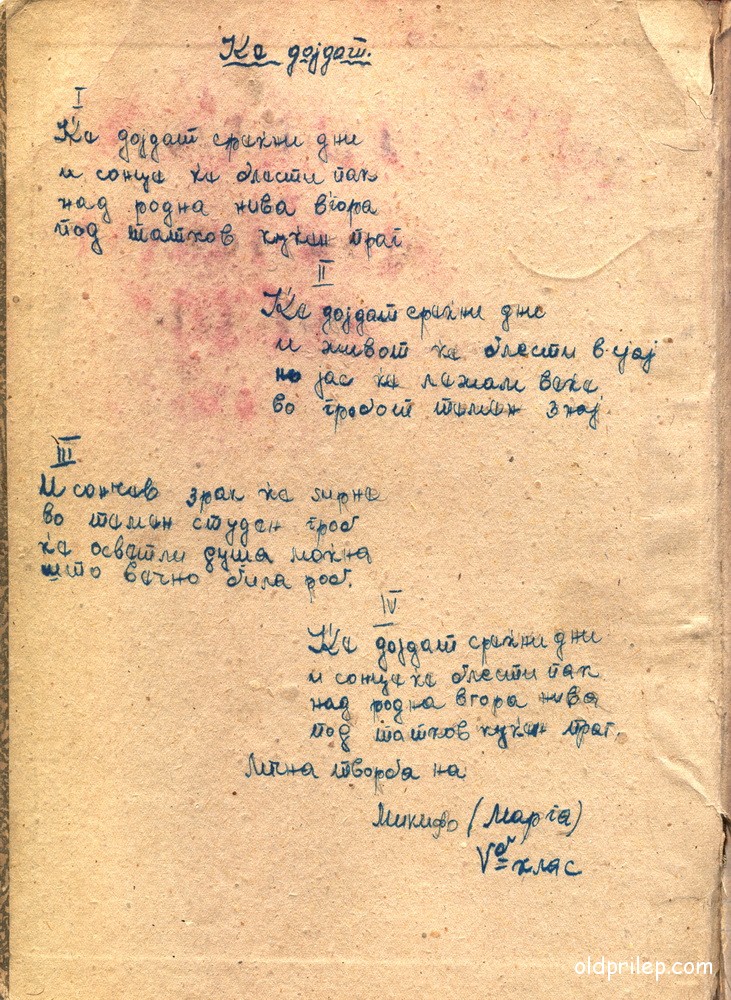 Ќе дојдат.
I
Ќе дојдат среќни дни
и сонце ќе блести пак
над родна нива вгора
под татков куќен праг
II
Ќе дојдат среќни дни
и живот ќе блести в сјај
но јас ќе лежам веќе
во гробот темен знај
III
И сончев зрак ќе ѕирне
во темен студен гроб
ќе осветли душа моќна
што вечно била роб.
IV
Ќе дојдат среќни дни
и сонце ќе блести пак
над родна вгора нива
под татков куќен праг.
Лична творба на
клас
oldprilep.com